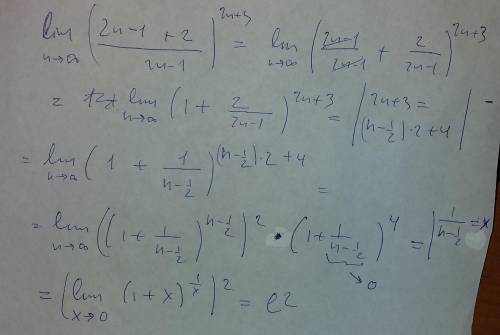 lim n→∞ ((2n-1+2)/(2n-1))^(2n+3) = lim n→∞ ((2n-1)/(2n-1) + 2/(2n-1))^(2n+3)
= lim n→∞ (1 + 2/(2n-1))^(2n+3) = |2n+3 = (n-1/2)·2+4|
= lim n→∞ (1 + 1/(n-1/2))^((n-1/2)·2+4) =
= lim n→∞ ((1 + 1/(n-1/2))^(n-1/2))^2 · (1 + 1/(n-1/2))^4 = |1/(n-1/2) = x
→ 0
= (lim x→0 (1+x)^(1/x))^2 = e^2